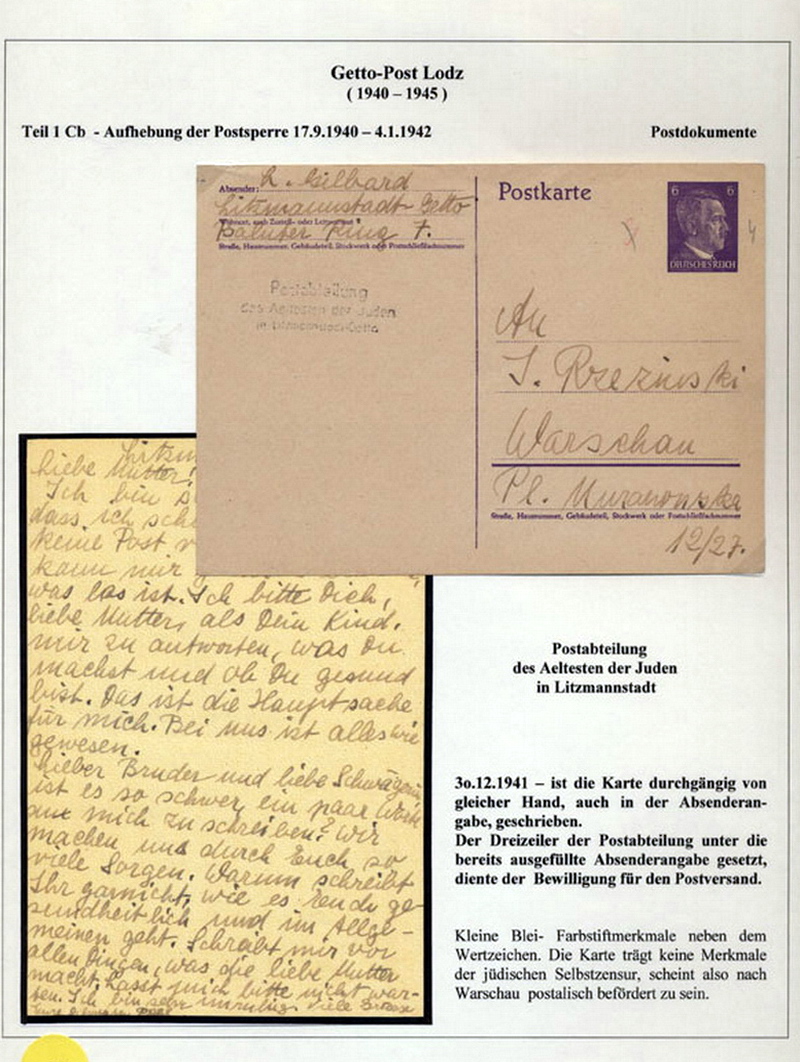 Getto-Post Lodz
( 1940 – 1945 )
Teil 1 Cb - Aufhebung der Postsperre 17.9.1940 – 4.1.1942
Postdokumente
Absender:
Litzmannstadt-Getto
Wohnort, auch Zustell- oder Leitpostamt
Baluter Ring 7.
Straße, Hausnummer, Gebäudeteil, Stockwerk oder Postschließfachnummer
Postabteilung
des Aeltesten der Juden
in Litzmannstadt-Getto
Postkarte
6 6
DEUTSCHES REICH
An
Warschau
Pl. Muranowska
Straße, Hausnummer, Gebäudeteil, Stockwerk oder Postschließfachnummer
12/27.
Litzm
liebe Mutter!
Ich bin s
dass ich
keine Post
kann nur
was los ist. Ich bitte Dich,
liebe Mutter, als Dein Kind,
mir zu antworten, was Du
machst und ob Du gesund
bist. Das ist die Hauptsache
für mich. Bei uns ist alles wie
gewesen.
Lieber Bruder und liebe Schwägerin
ist es so schwer, ein paar
an mich zu schreiben? Wir
machen uns durch Euch so
viele Sorgen. Warum schreibt
Ihr garnicht, wie es Euch ge-
sundheitlich und im Allge-
meinen geht. Schreibt mir vor
allen Dingen, was die liebe Mutter
macht. Lasst mich bitte nicht war-
ten. Ich bin sehr unruhig. Viele Grüsse
Postabteilung
des Aeltesten der Juden
in Litzmannstadt
3o.12.1941 – ist die Karte durchgängig von
gleicher Hand, auch in der Absenderan-
gabe, geschrieben.
Der Dreizeiler der Postabteilung unter die
bereits ausgefüllte Absenderangabe gesetzt,
diente der Bewilligung für den Postversand.
Kleine Blei- Farbstiftmerkmale neben dem
Wertzeichen. Die Karte trägt keine Merkmale
der jüdischen Selbstzensur, scheint also nach
Warschau postalisch befördert zu sein.